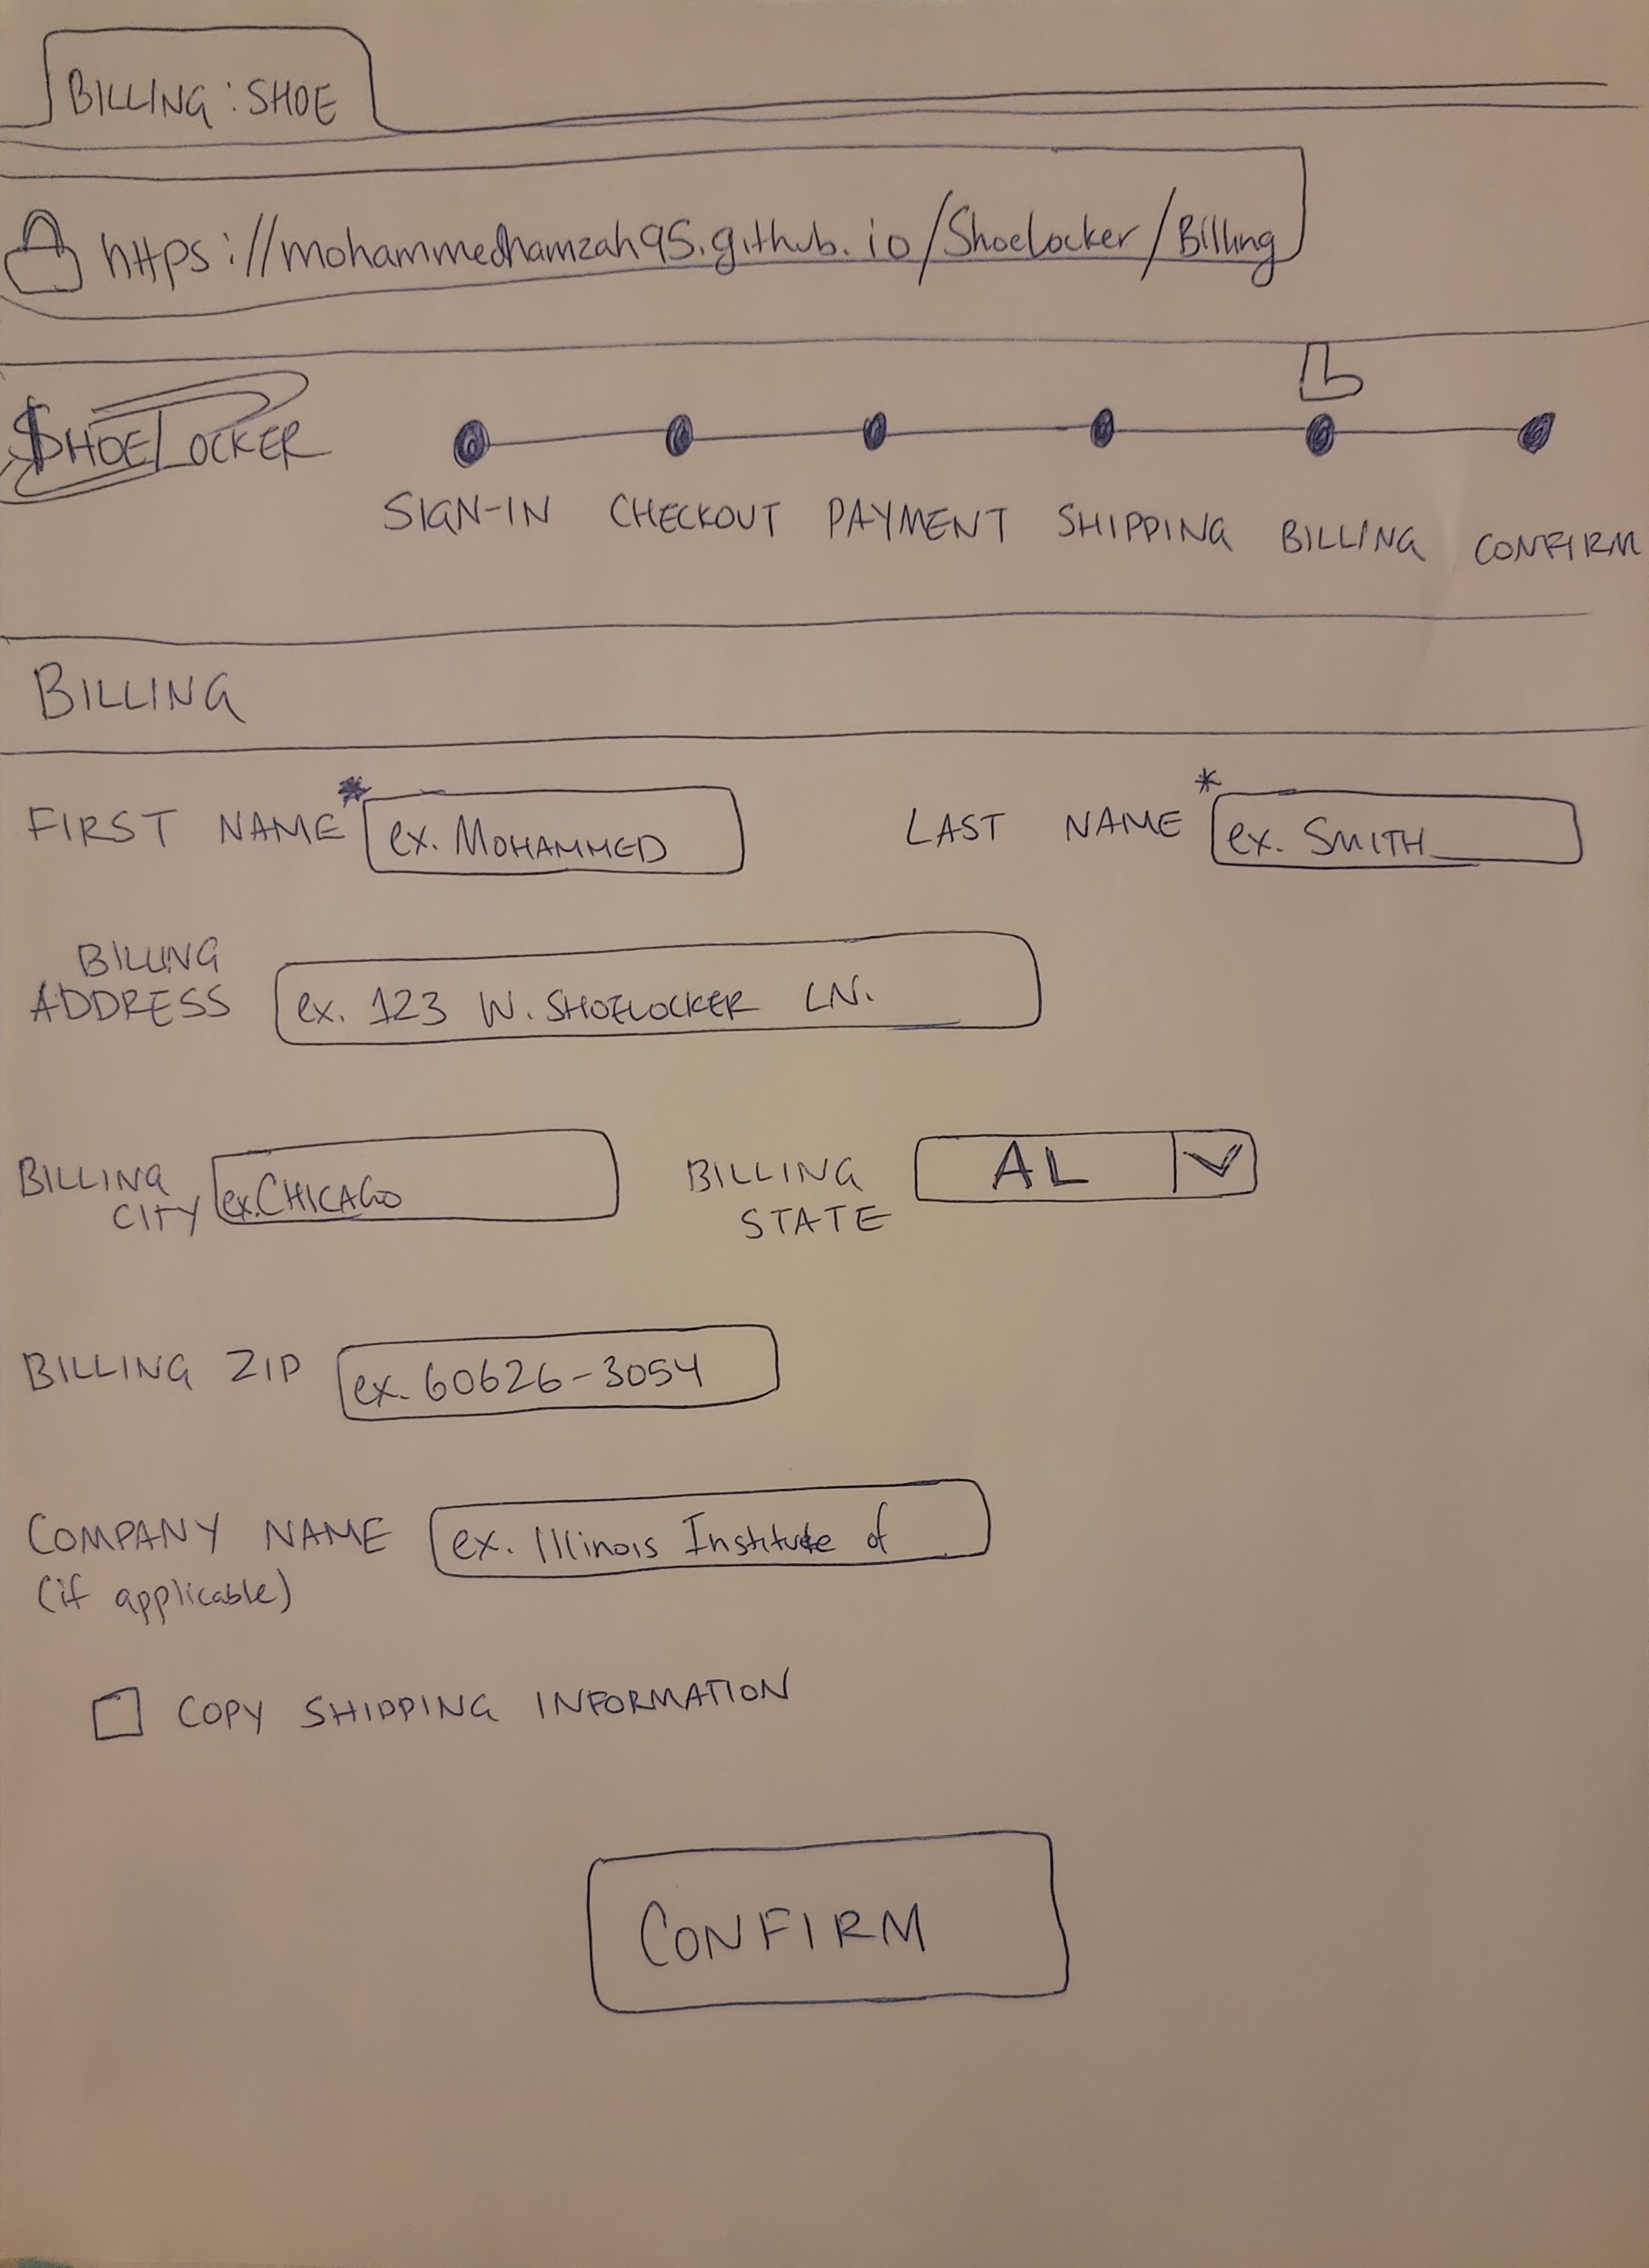 BILLING : SHOE
https://mohammedhamzah95.github.io/Shoelocker/Billing
$HOELOCKER
SIGN-IN CHECKOUT PAYMENT SHIPPING BILLING CONFIRM
BILLING
FIRST NAME* ex. MOHAMMED LAST NAME* ex. SMITH
BILLING
ADDRESS ex. 123 W. SHOELOCKER LN.
BILLING
CITY ex. CHICAGO
BILLING
STATE AL
BILLING ZIP ex. 60626-3054
COMPANY NAME ex. Illinois Institute of
(if applicable)
COPY SHIPPING INFORMATION
CONFIRM